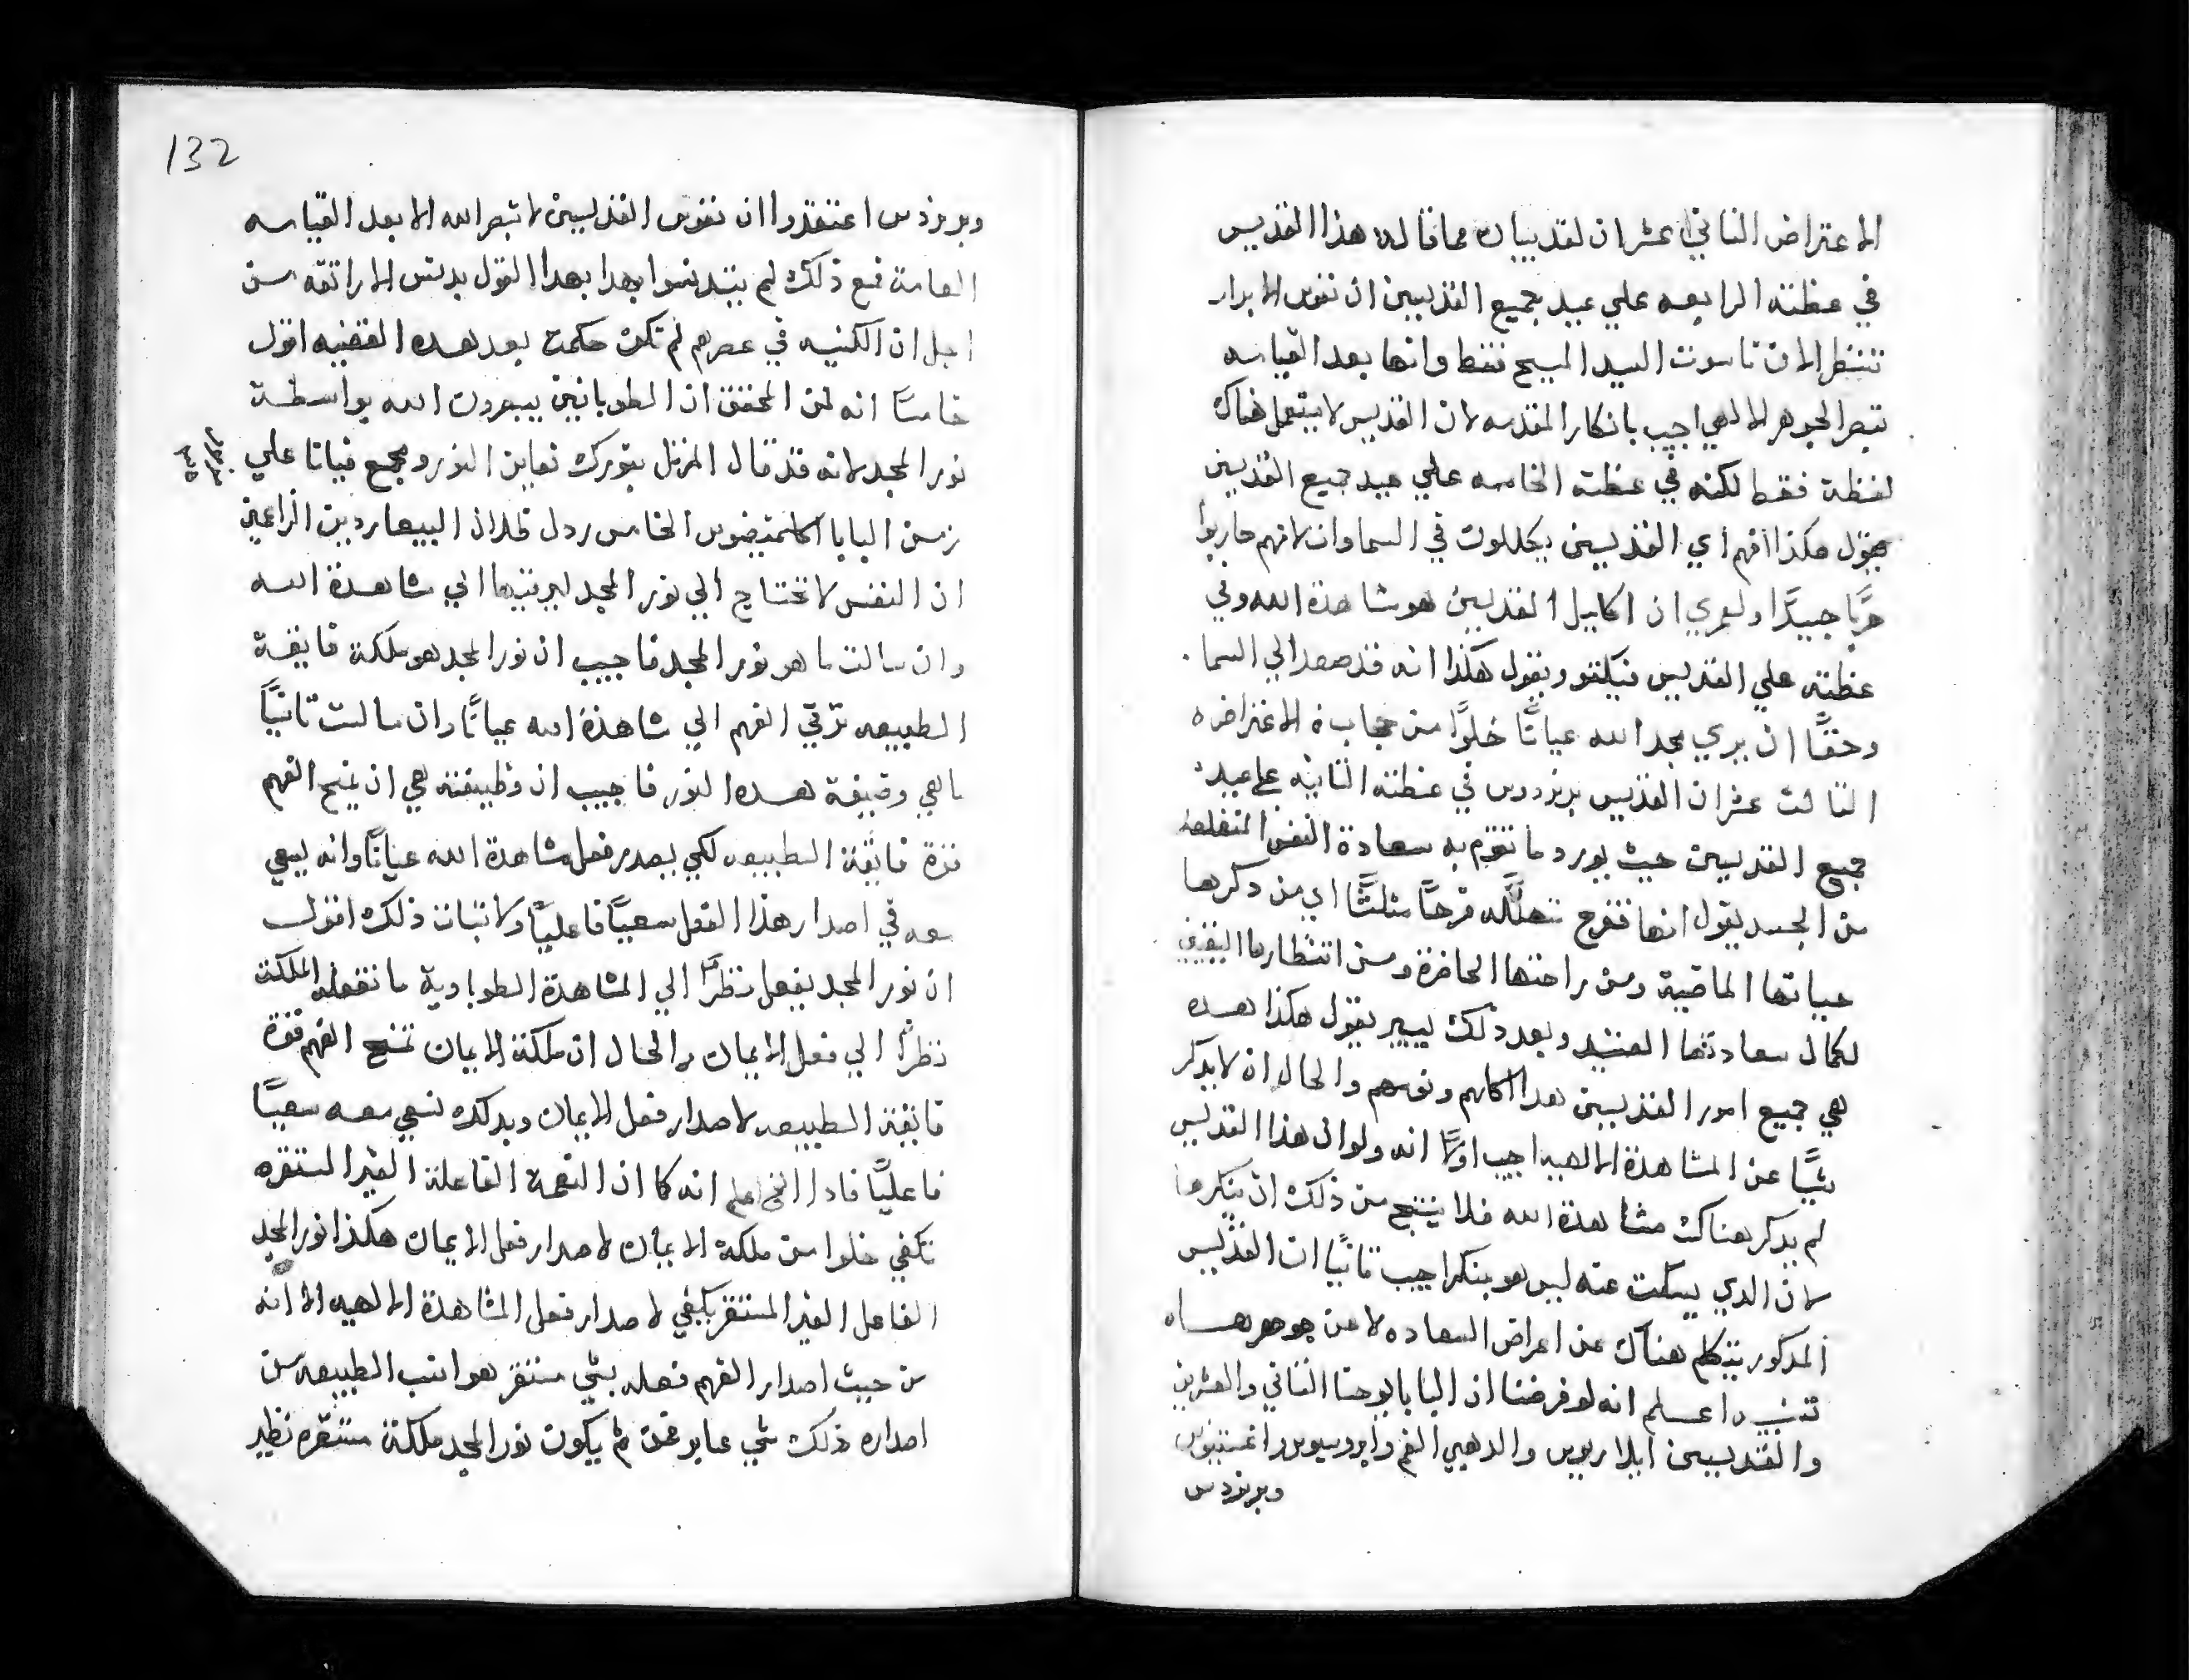 الاعتراض التاني عشر ان لقد يبان مما قاله هذا القديس
في عظته الرابعه علي عيد جميع القديسين ان نفوس الابرار
تنتظر الان ناسوت السيد المسيح فقط وانها بعد القيامه
تبصر الجوهر الالهي اجيب بانكار المقدمه لان القديس لا يستعمل هناك
لفظة فقط لكنه في عظته الخامسه علي عيد جميع القديسين
يقول هكذا انهم اي القديسين يكللون في السماوات لانهم حاربوا
حربًا جيدًا ولعمري ان اكاليل القديسين هو مشاهدة الله وفي
عظته علي القديس فيكتور يقول هكذا انه قد صعد الي السما
وحقًا ان يري مجد الله عيانًا خلوًا من حجاب ة الاعتراضه
التالت عشر ان القديس برنردوس في عظته التانيه علي عيد
جميع القديسين حيث يورد ما تقوم به سعادة النفس المنفصله
من الجسد يقول انها تفرح متهلله فرحًا مثلثًا اي من دكرها
حياتها الماضية ومن راحتها الحاضرة ومن انتظارها اليقيني
لكمال سعادتها العتيد وبعد ذلك يسير يقول هكذا هده
هي جميع امور القديسين هدا اكلهم ونومهم والحال انه لا يدكر
شيًا عن المشاهدة الالهيه اجيب اولًا انه ولو ان هذا القديس
لم يدكر هناك مشاهدة الله فلا ينتج من ذلك ان ينكرها
لان الدي يسكت عنه ليس هو بنكر اجيب تانيًا ان القديس
المدكور يتكلم هناك عن اعراض السعاده لا عن جوهرهاه
تنبيه واعلم انه لو فرضنا ان البابا يوحنا التاني والعشرين
والقديسين ايلاريوس والدهبي الفم وامبروسيوس واغستينوس
وبرنردس
132
وبرنردس اعتقدوا ان نفوس القديسين لا تبصر الله الا بعد القيامه
العامة فمع ذلك لم يتدنسوا بهدا بهدا القول بدنس الاراتقه من
اجل ان الكنيسه في عصرهم لم تكن حكمت بعد هده القضيه اقول
خامسًا انه لمن المحقق ان الطوبانيين يبصرون الله بواسطة
نور المجد لانه قد قال المرتل بنورك نعاين النور ومجمع فيانا علي
مزمور ٣٥
زمن البابا اكليمنضوس الخامس ردل ضلال البيغارديين الزاعمين
ان النفس لا تحتاج الي نور المجد ليرقيها الي مشاهدة الله
وان سالت ما هو نور المجد فاجيب ان نور المجد هو ملكة فايقة
الطبيعه ترقي الفهم الي مشاهدة الله عيانًا وان سالت تانيًا
ما هي وضيفة هده النور فاجيب ان وظيفته هي ان يمنح الفهم
قوة فايقة الطبيعه لكي يصدر فعل مشاهدة الله عيانًا وانه يسعي
معه في اصدار هذا الفعل سعيًا فاعليًا ولاتبات ذلك اقول
ان نور المجد يفعل نظرًا الي المشاهدة الطوباوية ما تفعله الملكة
نظرًا الي فعل الايمان والحال ان ملكة الايمان تمنح الفهم قوة
فايقة الطبيعه لاصدار فعل الايمان وبدلك تسعي معه سعيًا
فاعليًا فادا الخ اعلم انه كما ان النعمة الفاعلة الغير المستقره
تكفي خلوا من ملكة الايمان لاصدار فعل الايمان هكذا نور المجد
الفاعل الغير المستقر يكفي لاصدار فعل المشاهدة الالهيه الا انه
من حيث اصدار الفهم فعله بشي مستقر هو انسب الطبيعه من
اصداره ذلك بشي عابر فمن ثم يكون نور المجد ملكة مستقره نظير